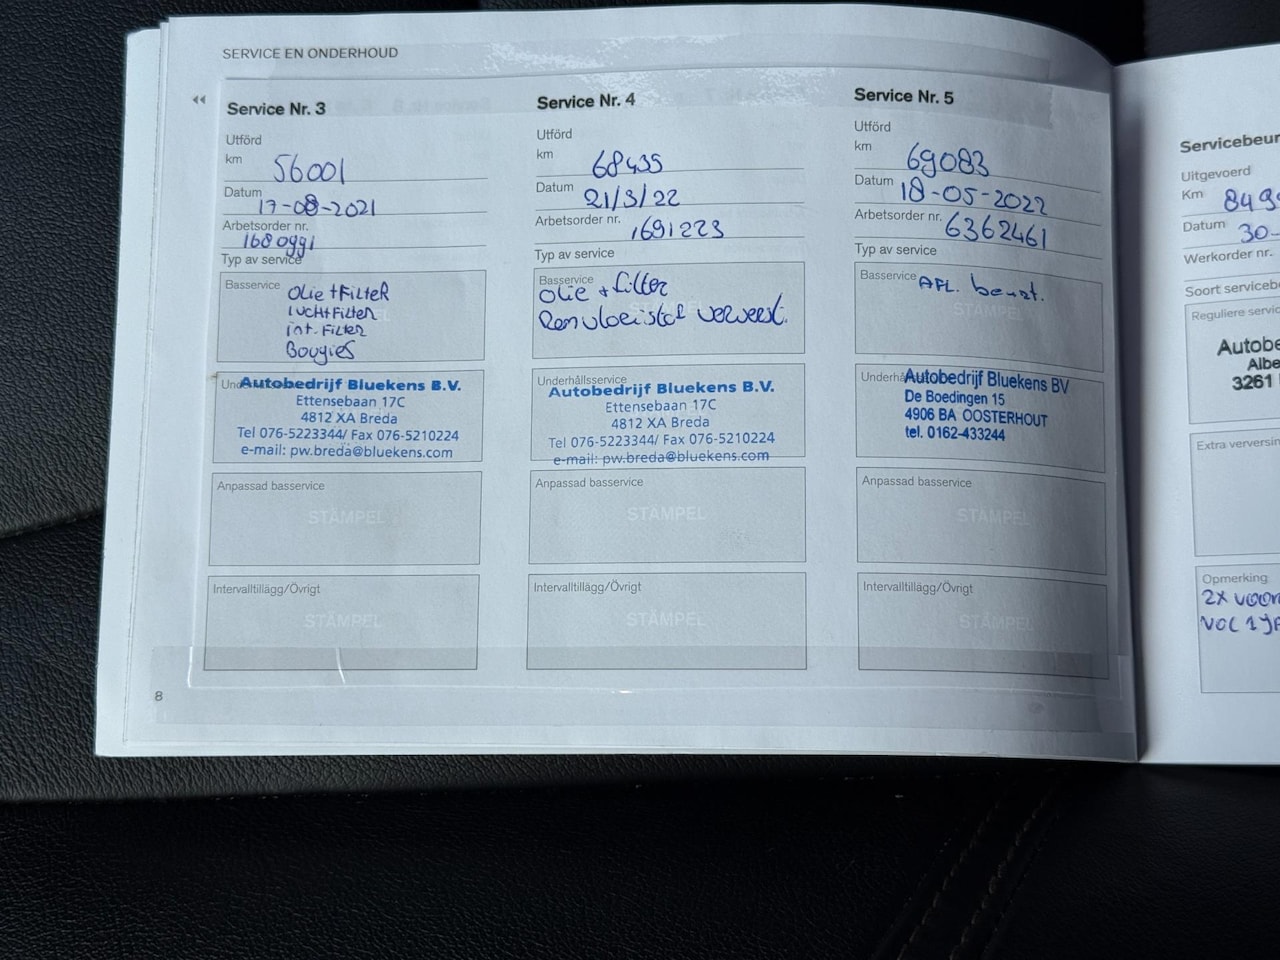 SERVICE EN ONDERHOUD
Service Nr. 3
Utförd
km 56001
Datum 17-08-2021
Arbetsorder nr.
1680991
Typ av service
Basservice
Olie + Filter
luchtFilter
int. Filter
Bougies
Autobedrijf Bluekens B.V.
Ettensebaan 17C
4812 XA Breda
Tel 076-5223344/ Fax 076-5210224
e-mail: pw.breda@bluekens.com
Anpassad basservice
STÄMPEL
Intervalltillägg/Övrigt
STÄMPEL
8
Service Nr. 4
Utförd
km 68435
Datum 21/3/22
Arbetsorder nr. 1691223
Typ av service
Basservice
Olie + filter
Remvloeistof ververst.
Underhållsservice
Autobedrijf Bluekens B.V.
Ettensebaan 17C
4812 XA Breda
Tel 076-5223344/ Fax 076-5210224
e-mail: pw.breda@bluekens.com
Anpassad basservice
STÄMPEL
Intervalltillägg/Övrigt
STÄMPEL
Service Nr. 5
Utförd
km 69083
Datum 18-05-2022
Arbetsorder nr. 6362461
Typ av service
Basservice AFL. beurt.
STÄMPEL
Autobedrijf Bluekens BV
De Boedingen 15
4906 BA OOSTERHOUT
tel. 0162-433244
Anpassad basservice
STÄMPEL
Intervalltillägg/Övrigt
STÄMPEL
Servicebeur
Uitgevoerd
Km 849
Datum 30-
Werkorder nr.
Soort servicebe
Reguliere servic
Autobe
Albe
3261
Extra verversin
Opmerking
2x voor